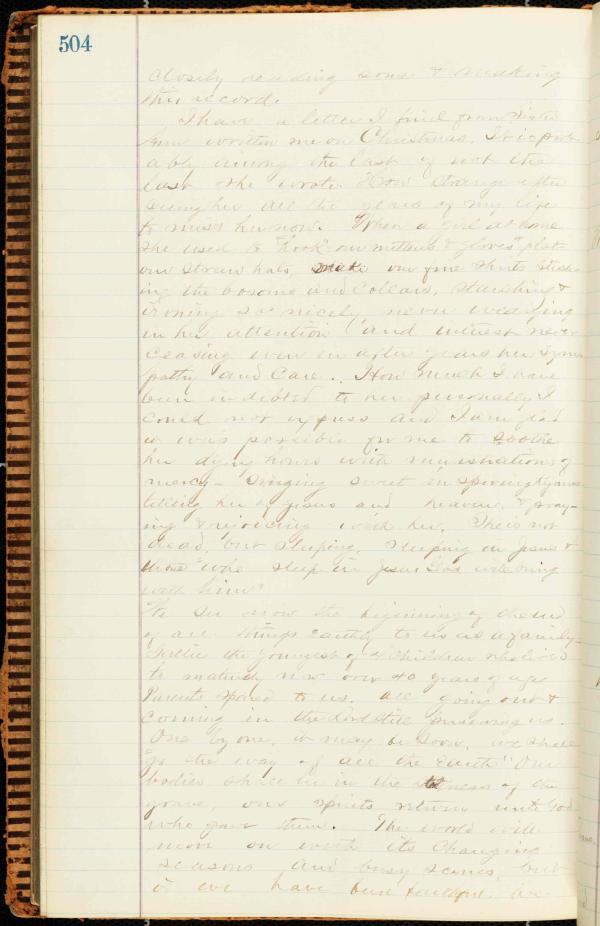 504
closely reading some & making
this record.
I have a letter I find from Sister
Ann written me on Christmas. It is prob-
ably among the last if not the
last she wrote. How strange after
seeing her all the years of my life
to miss her now. When a girl at home
she used to "hook" our mittens & gloves plat
our straw hats, make our fine shirts stitch-
ing the bosoms and collars, starching &
ironing so nicely never wearying
in her attention and interest never
ceasing even in after years her sym-
pathy and care. How much I have
been indebted to her personally I
could not express and I am glad
it was possible for me to soothe
her dying hours with ministrations of
mercy - Singing sweet inspiring hymns
telling her of Jesus and heaven & pray-
ing & rejoicing with her. She is not
dead, but sleeping. Sleeping in Jesus &
those "who sleep in Jesus God will bring
with him"
We see now the beginning of the end
of all things earthly to us as a family.
the youngest of children who lived
to maturity now over 40 years of age
Parents spared to us, all going out &
coming in the Lord still preserving us.
One by one, it may be soon, we shall
"go the way of all the Earth" Our
bodies shall lie in the of the
grave, our spirits return unto God
who gave them. The world will
move on with its changing
seasons and busy scenes, but
if we have been faithful we